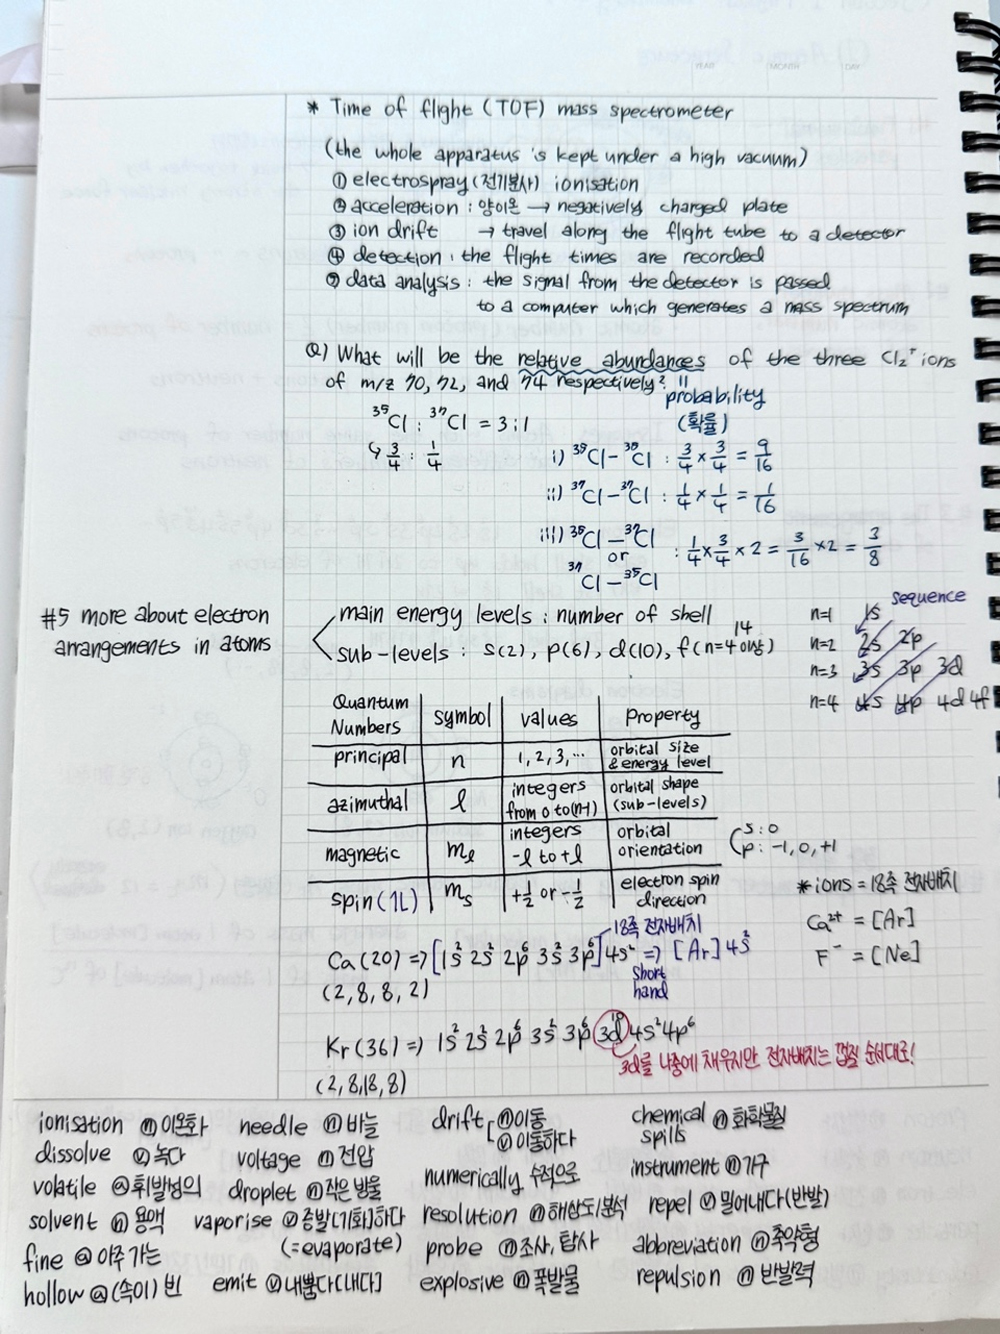 YEAR MONTH DAY
* Time of flight (TOF) mass spectrometer
(the whole apparatus is kept under a high vacuum)
① electrospray (전기분사) ionisation
② acceleration : 양이온 → negatively charged plate
③ ion drift → travel along the flight tube to a detector
④ detection : the flight times are recorded
⑤ data analysis : the signal from the detector is passed
to a computer which generates a mass spectrum
Q) What will be the relative abundances of the three Cl₂⁺ ions
of m/z 70, 72, and 74 respectively? "
probability
(확률)
³⁵Cl : ³⁷Cl = 3 : 1
↳ 3/4 : 1/4
i) ³⁵Cl – ³⁵Cl : 3/4 × 3/4 = 9/16
ii) ³⁷Cl – ³⁷Cl : 1/4 × 1/4 = 1/16
iii) ³⁵Cl – ³⁷Cl
or : 1/4 × 3/4 × 2 = 3/16 × 2 = 3/8
³⁷Cl – ³⁵Cl
#5 more about electron
arrangements in atoms
main energy levels : number of shell
sub-levels : s(2), p(6), d(10), f(n=4 이상) 14
sequence
n=1 1s
n=2 2s 2p
n=3 3s 3p 3d
n=4 4s 4p 4d 4f
Quantum Numbers | symbol | values | Property
principal | n | 1, 2, 3, … | orbital size & energy level
azimuthal | l | integers from 0 to (n-1) | orbital shape (sub-levels)
magnetic | mₗ | integers -l to +l | orbital orientation
( s : 0
p : -1, 0, +1
spin (↿⇂) | mₛ | +1/2 or -1/2 | electron spin direction
*ions = 18족 전자배치
Ca²⁺ = [Ar]
F⁻ = [Ne]
18족 전자배치
Ca(20) => [1s² 2s² 2p⁶ 3s² 3p⁶] 4s² => [Ar] 4s²
(2, 8, 8, 2)
short
hand
Kr(36) => 1s² 2s² 2p⁶ 3s² 3p⁶ 3d¹⁰ 4s² 4p⁶
3d를 나중에 채우지만 전자배치는 껍질 순서대로!
(2, 8, 18, 8)
ionisation ⓝ 이온화 needle ⓝ 바늘 drift ⓝ 이동 ⓥ 이동하다 chemical spills ⓝ 화학물질
dissolve ⓥ 녹다 voltage ⓝ 전압 numerically 수적으로 instrument ⓝ 기구
volatile ⓐ 휘발성의 droplet ⓝ 작은 방울 resolution ⓝ 해상도/분석 repel ⓥ 밀어내다(반발)
solvent ⓝ 용액 vaporise ⓥ 증발[기화]하다 (=evaporate) probe ⓝ 조사, 탐사 abbreviation ⓝ 축약형
fine ⓐ 아주 가는
hollow ⓐ (속이) 빈 emit ⓥ 내뿜다[내다] explosive ⓝ 폭발물 repulsion ⓝ 반발력